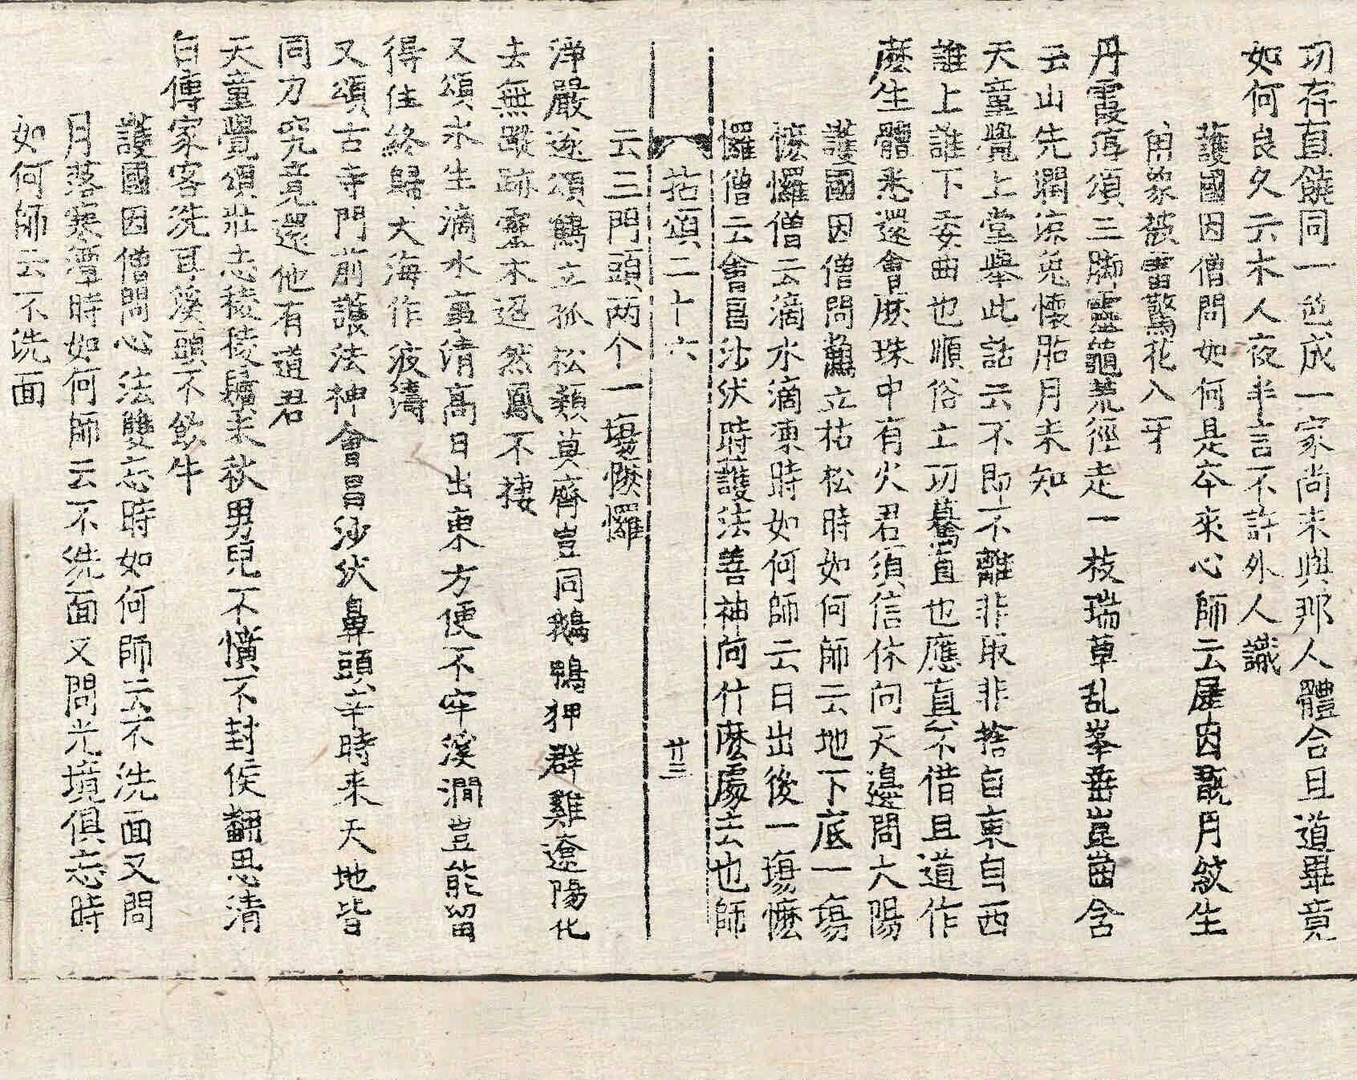 功存直饒同一色成一家尚未與那人體合且道畢竟
如何良久云木人夜半言不許外人識
護國因僧問如何是本來心師云犀因翫月紋生
角象被雷驚花入牙
丹霞淳頌三脚靈龜荒徑走一枝瑞草乱峯垂崑崙含
玉山先潤涼兎懷胎月未知
天童覺上堂舉此話云不即不離非取非捨自東自西
誰上誰下委曲也順俗亡功驀直也應真不借且道作
麽生體悉還會麽珠中有火君須信休向天邊問太陽
護國因僧問鶴立枯松時如何師云地下底一場
懡㦬僧云滴水滴凍時如何師云日出後一場懡
㦬僧云會昌沙汰時護法善神向什麽處去也師
拈頌二十六 廿三
云三門頭两个一場懡㦬
淨嚴遂頌鶴立孤松類莫齊豈同鵝鴨狎群雞遼陽化
去無蹤跡靈木迢然鳳不棲
又頌氷生滴水事清高日出東方便不牢溪澗豈能留
得住終歸大海作波濤
又頌古寺門前護法神會昌沙伏鼻頭辛時来天地皆
同力究竟還他有道君
天童覺頌壯志稜稜鬢未秋男兒不憤不封侯翻思清
白傳家客洗耳溪頭不飲牛
護國因僧問心法雙忘時如何師云不洗面又問
月落寒潭時如何師云不洗面又問光境俱忘時
如何師云不洗面